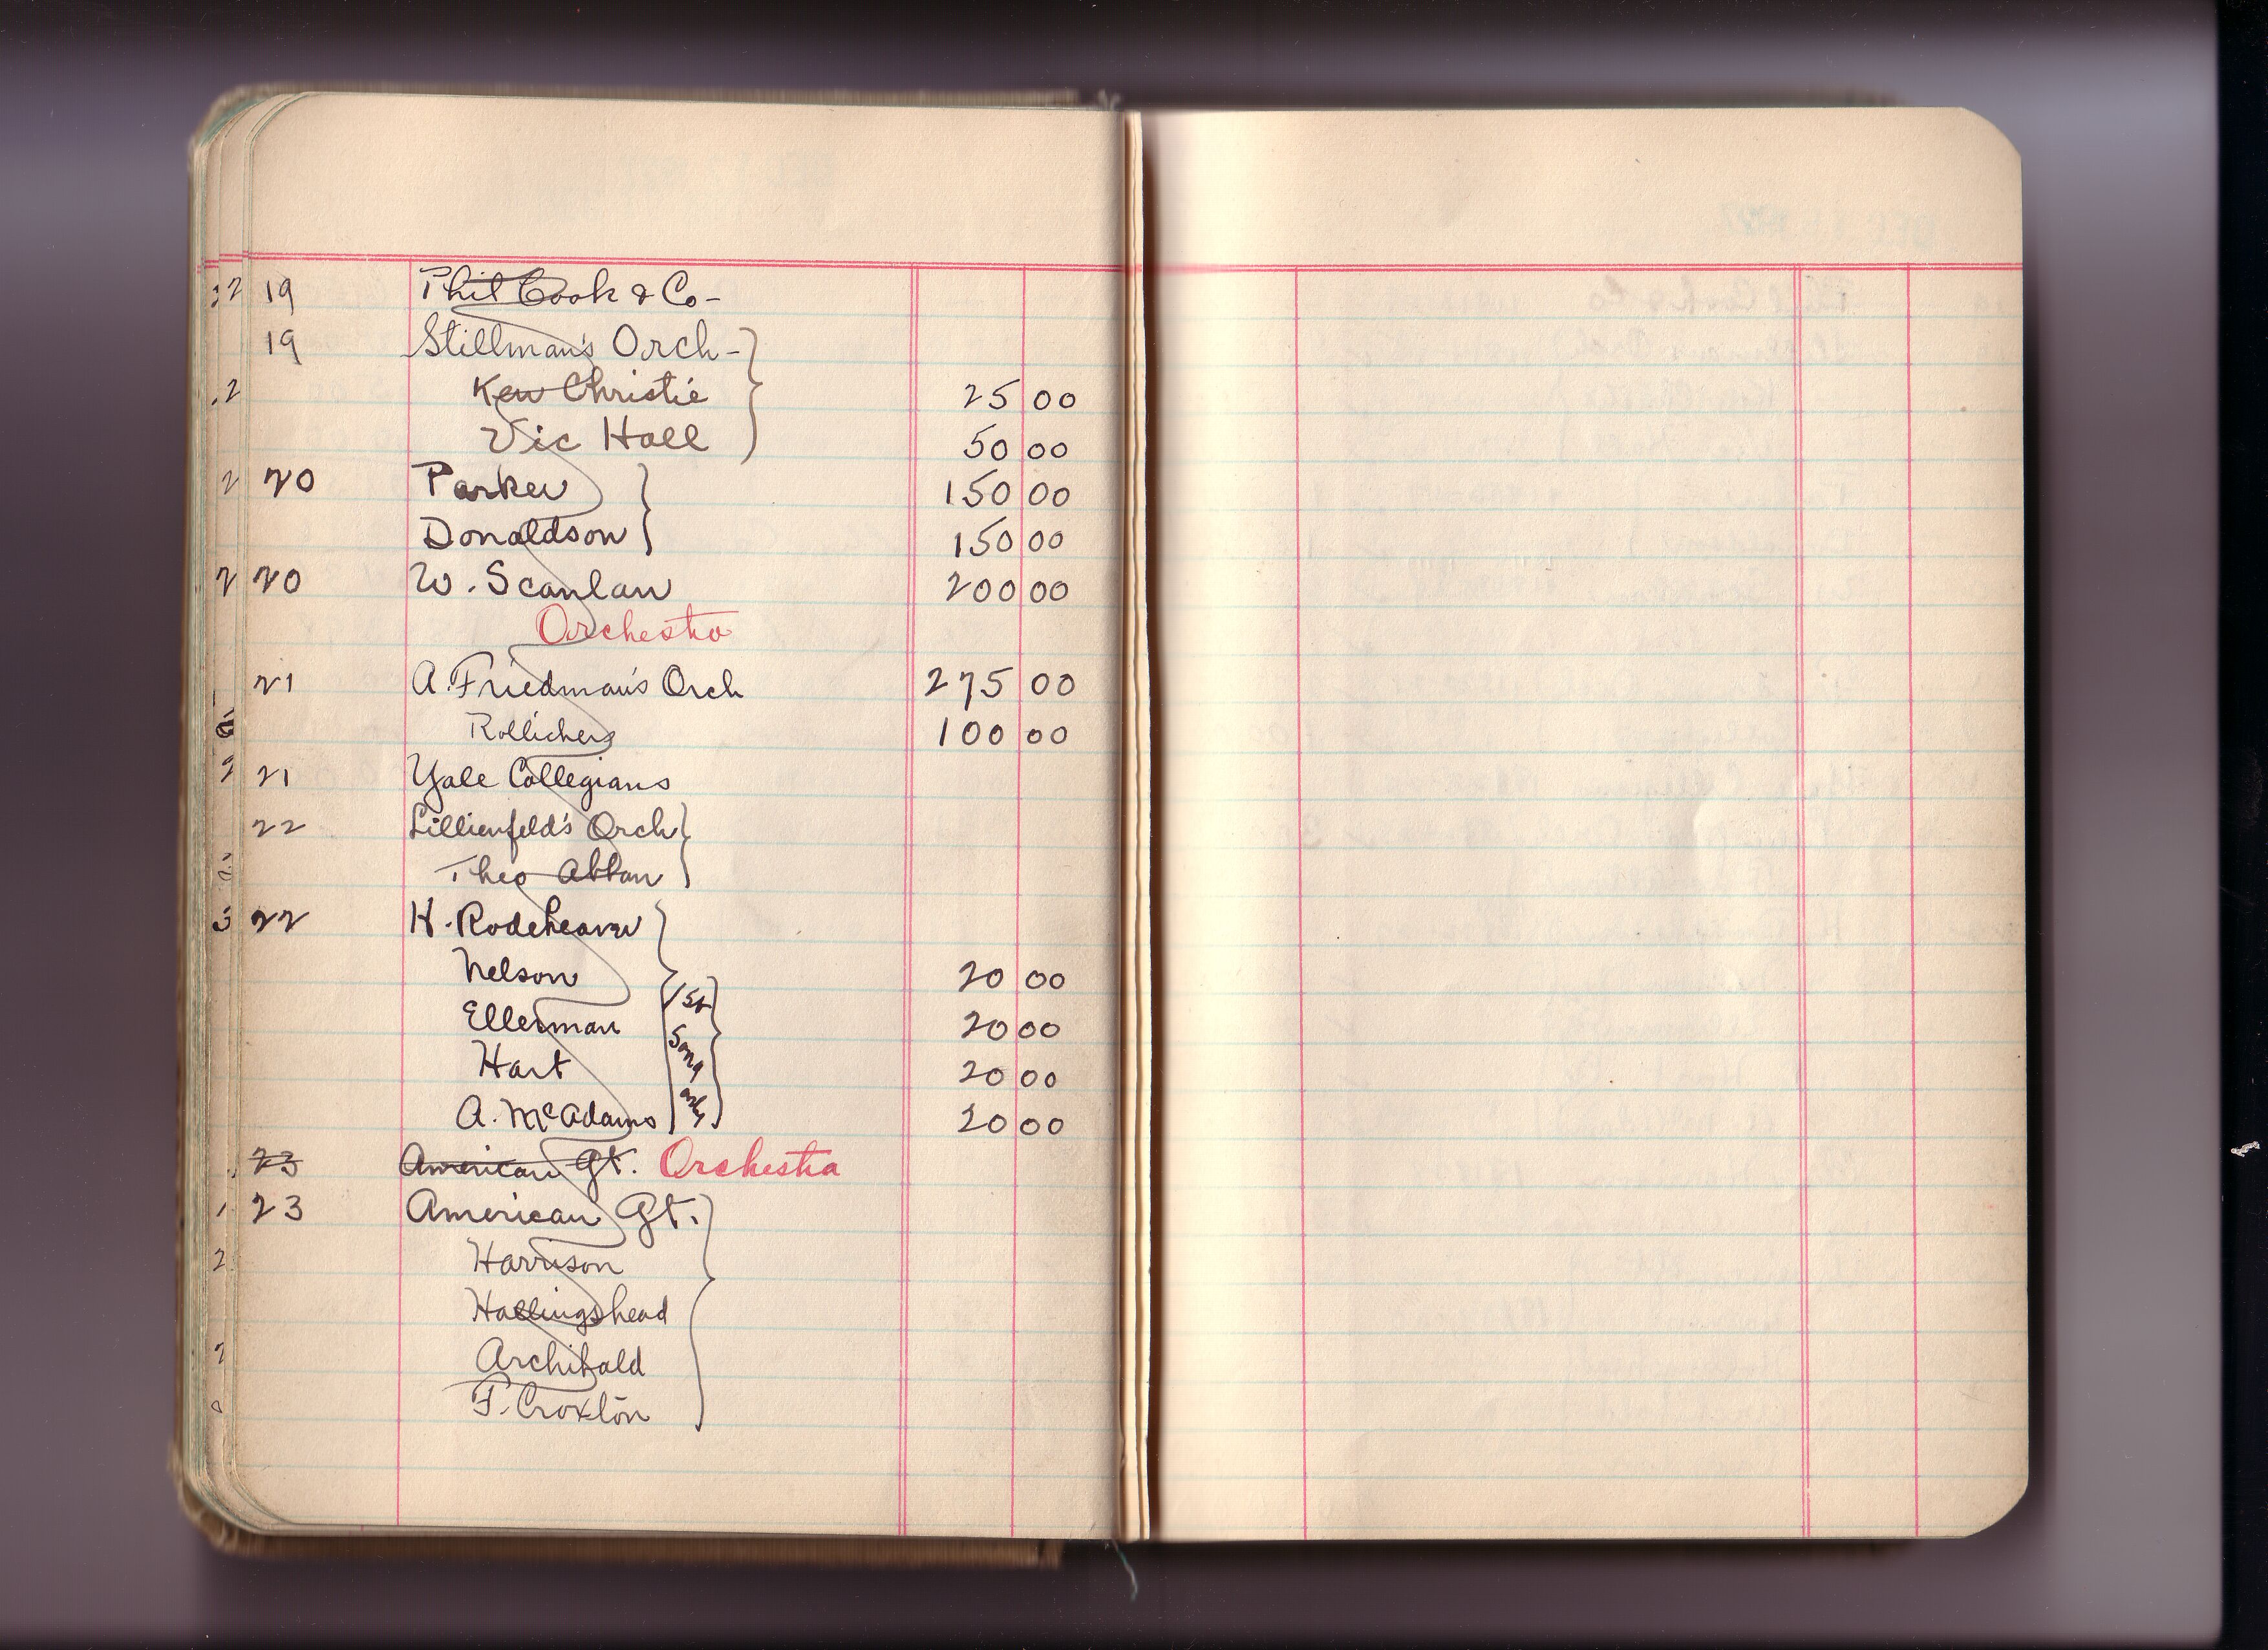 19 Phil Cook & Co-
19 Stillman's Orch-
Ken Christie 25 00
Vic Hall 50 00
20 Parker 150 00
Donaldson 150 00
20 W. Scanlan 200 00
Orchestra
21 A. Friedman's Orch 275 00
100 00
21 Yale Collegians
22 Lillienfeld's Orch
Theo
22 H. Rodeheaver
Nelson 20 00
1st
Ellerman 20 00
Song
Hart 20 00
only
A. McAdams 20 00
23 American Qt. Orchestra
23 American Qt.
Harrison
Hallingshead
Archibald
F. Croxton